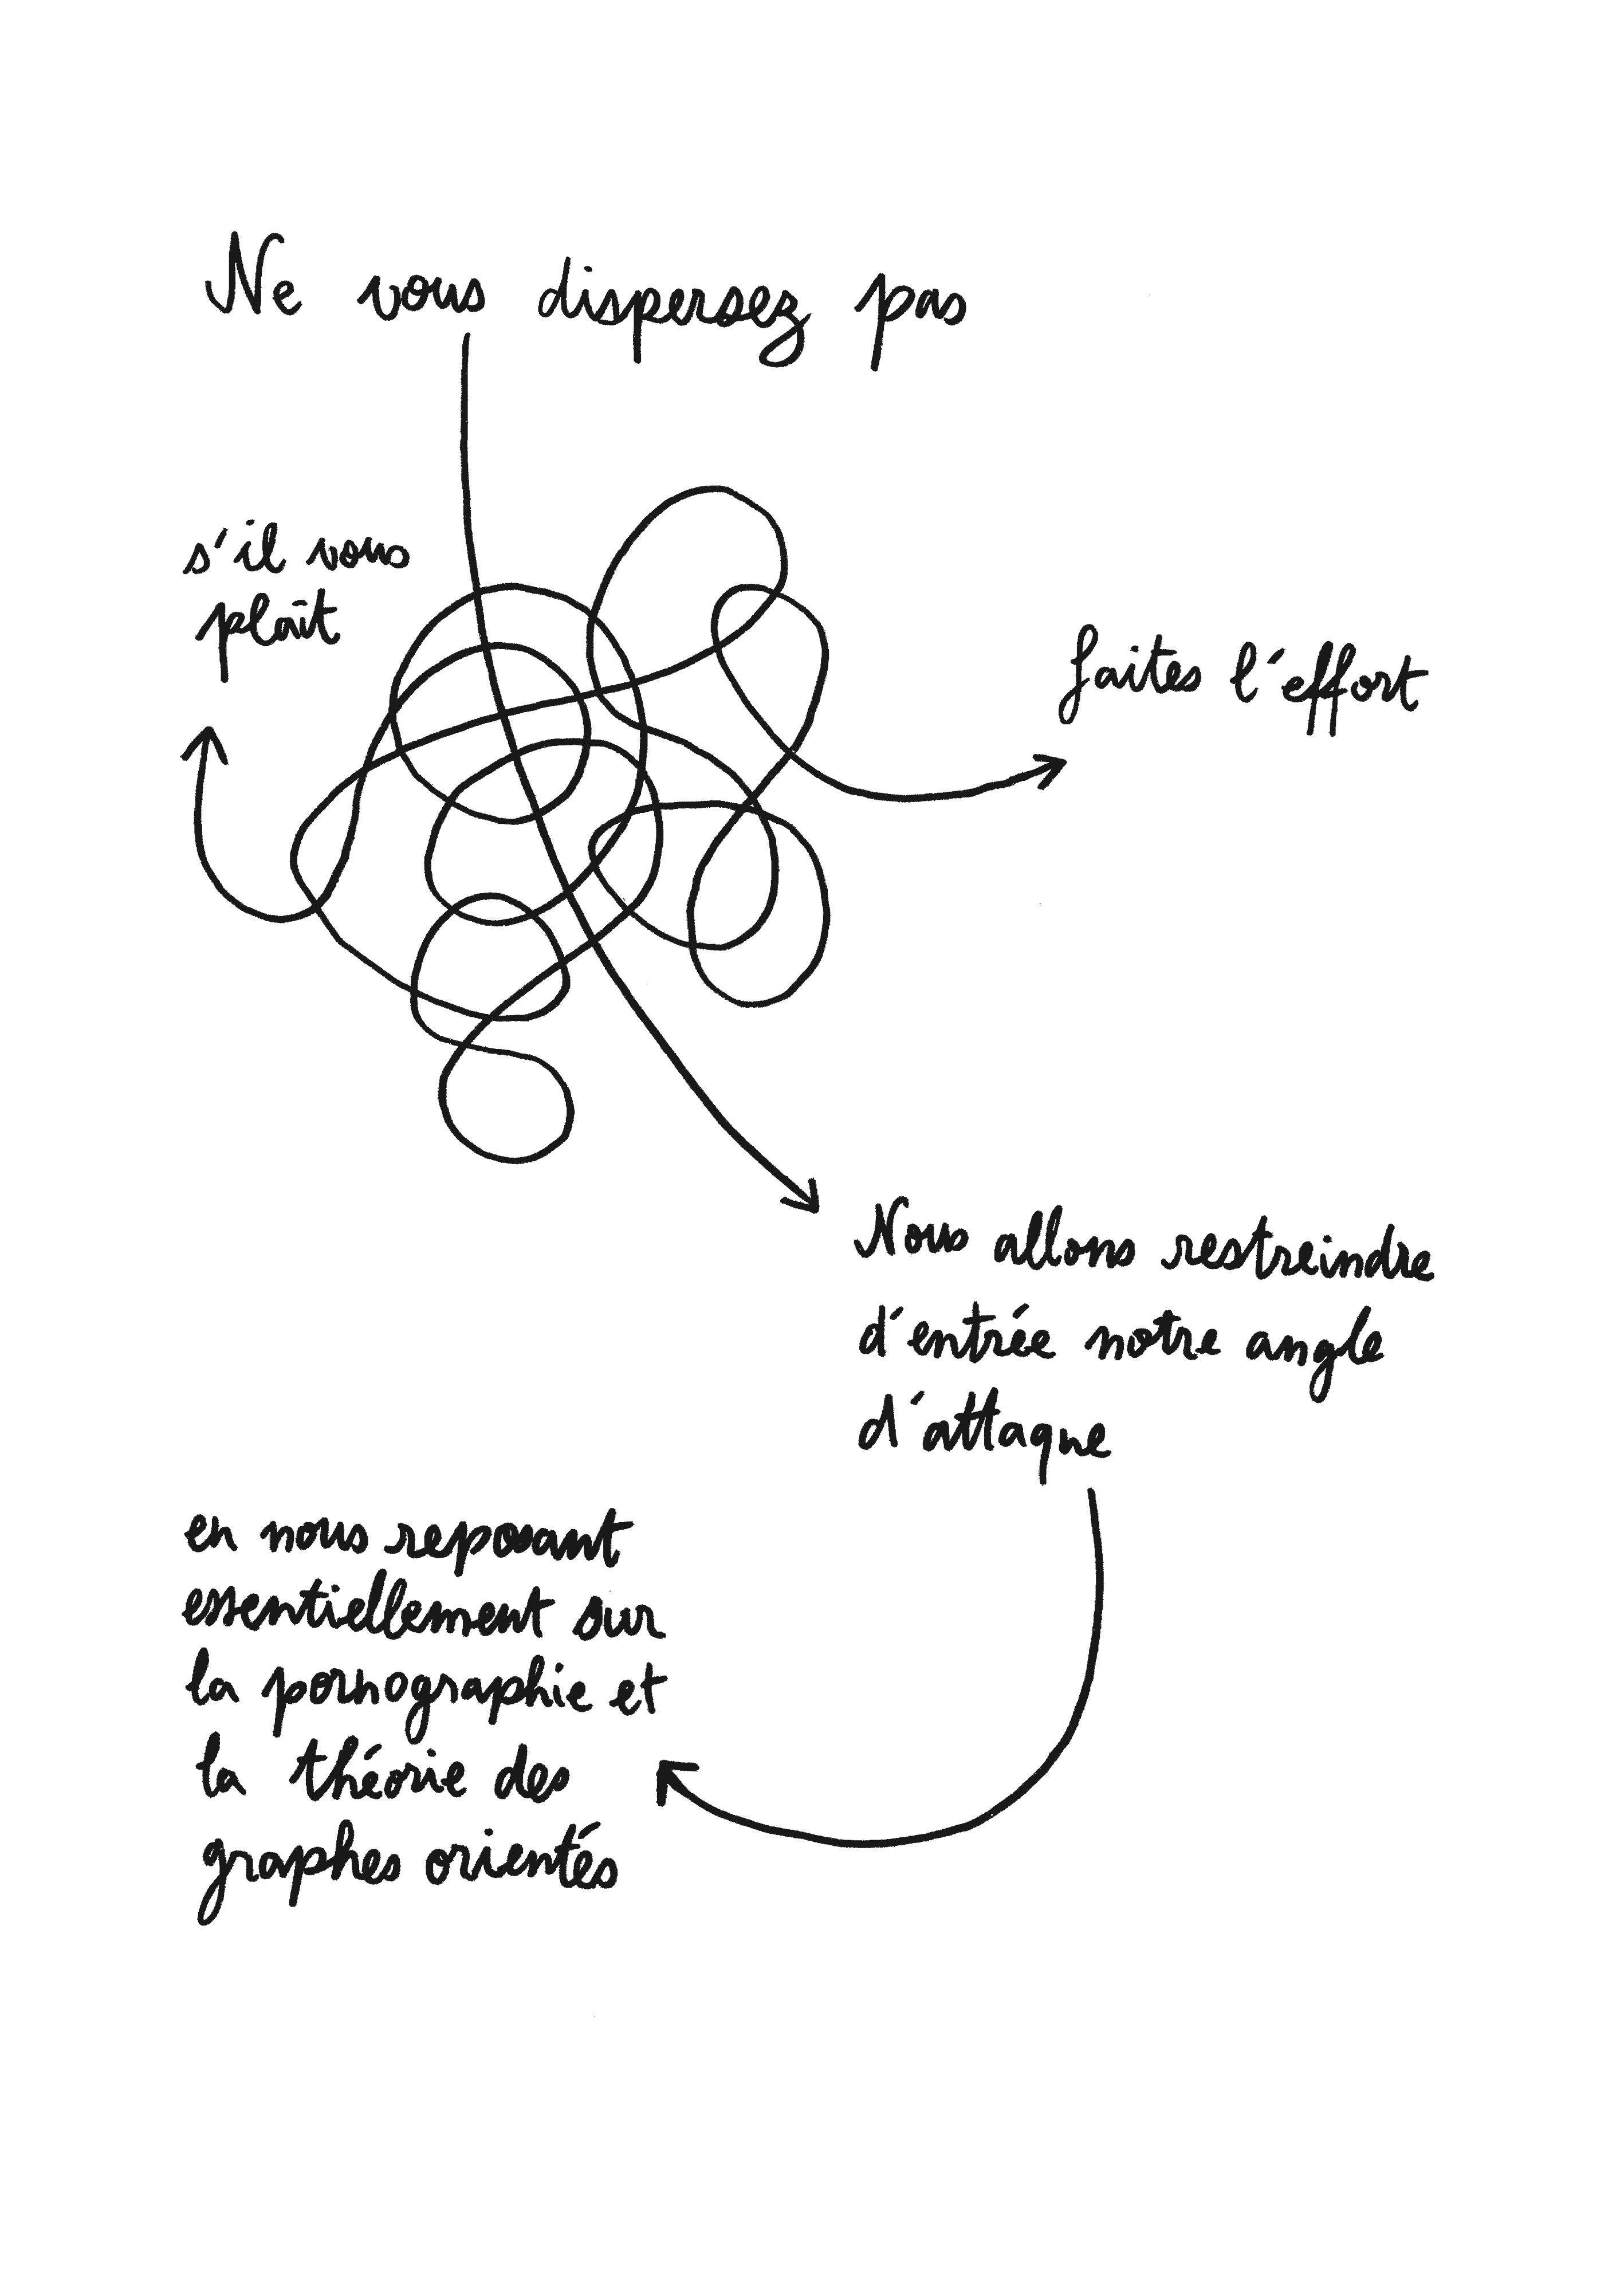 Ne vous dispersez pas
s'il vous
plaît
faites l'effort
Nous allons restreindre
d'entrée notre angle
d'attaque
en nous reposant
essentiellement sur
la pornographie et
la théorie des
graphes orientés